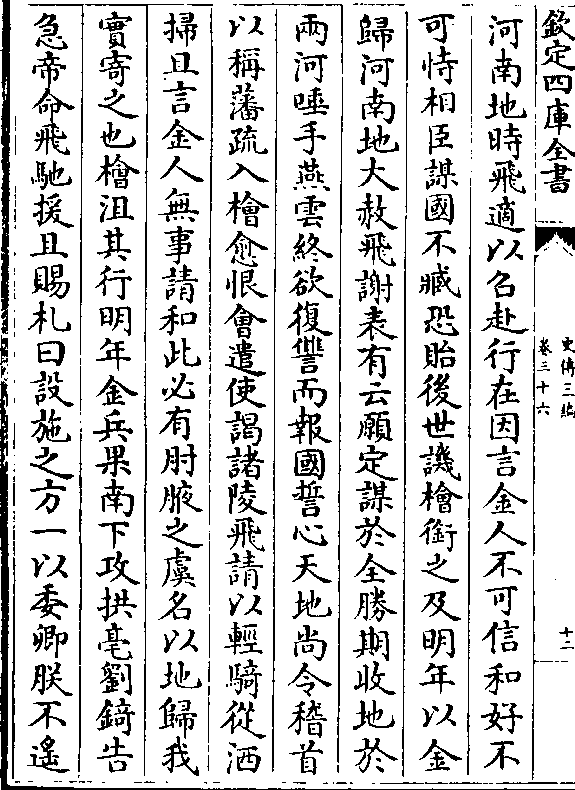 欽定四庫全書
史傳三編
卷三十六
十二
河南地時飛適以召赴行在因言金人不可信和好不
可恃相臣謀國不臧恐貽後世譏檜銜之及明年以金
歸河南地大赦飛謝表有云願定謀於全勝期收地於
兩河唾手燕雲終欲復讐而報國誓心天地尚令稽首
以稱藩疏入檜愈恨會遣使謁諸陵飛請以輕騎從洒
掃且言金人無事請和此必有肘腋之虞名以地歸我
實寄之也檜沮其行明年金兵果南下攻拱亳劉錡告
急帝命飛馳援且賜札曰設施之方一以委卿朕不遙